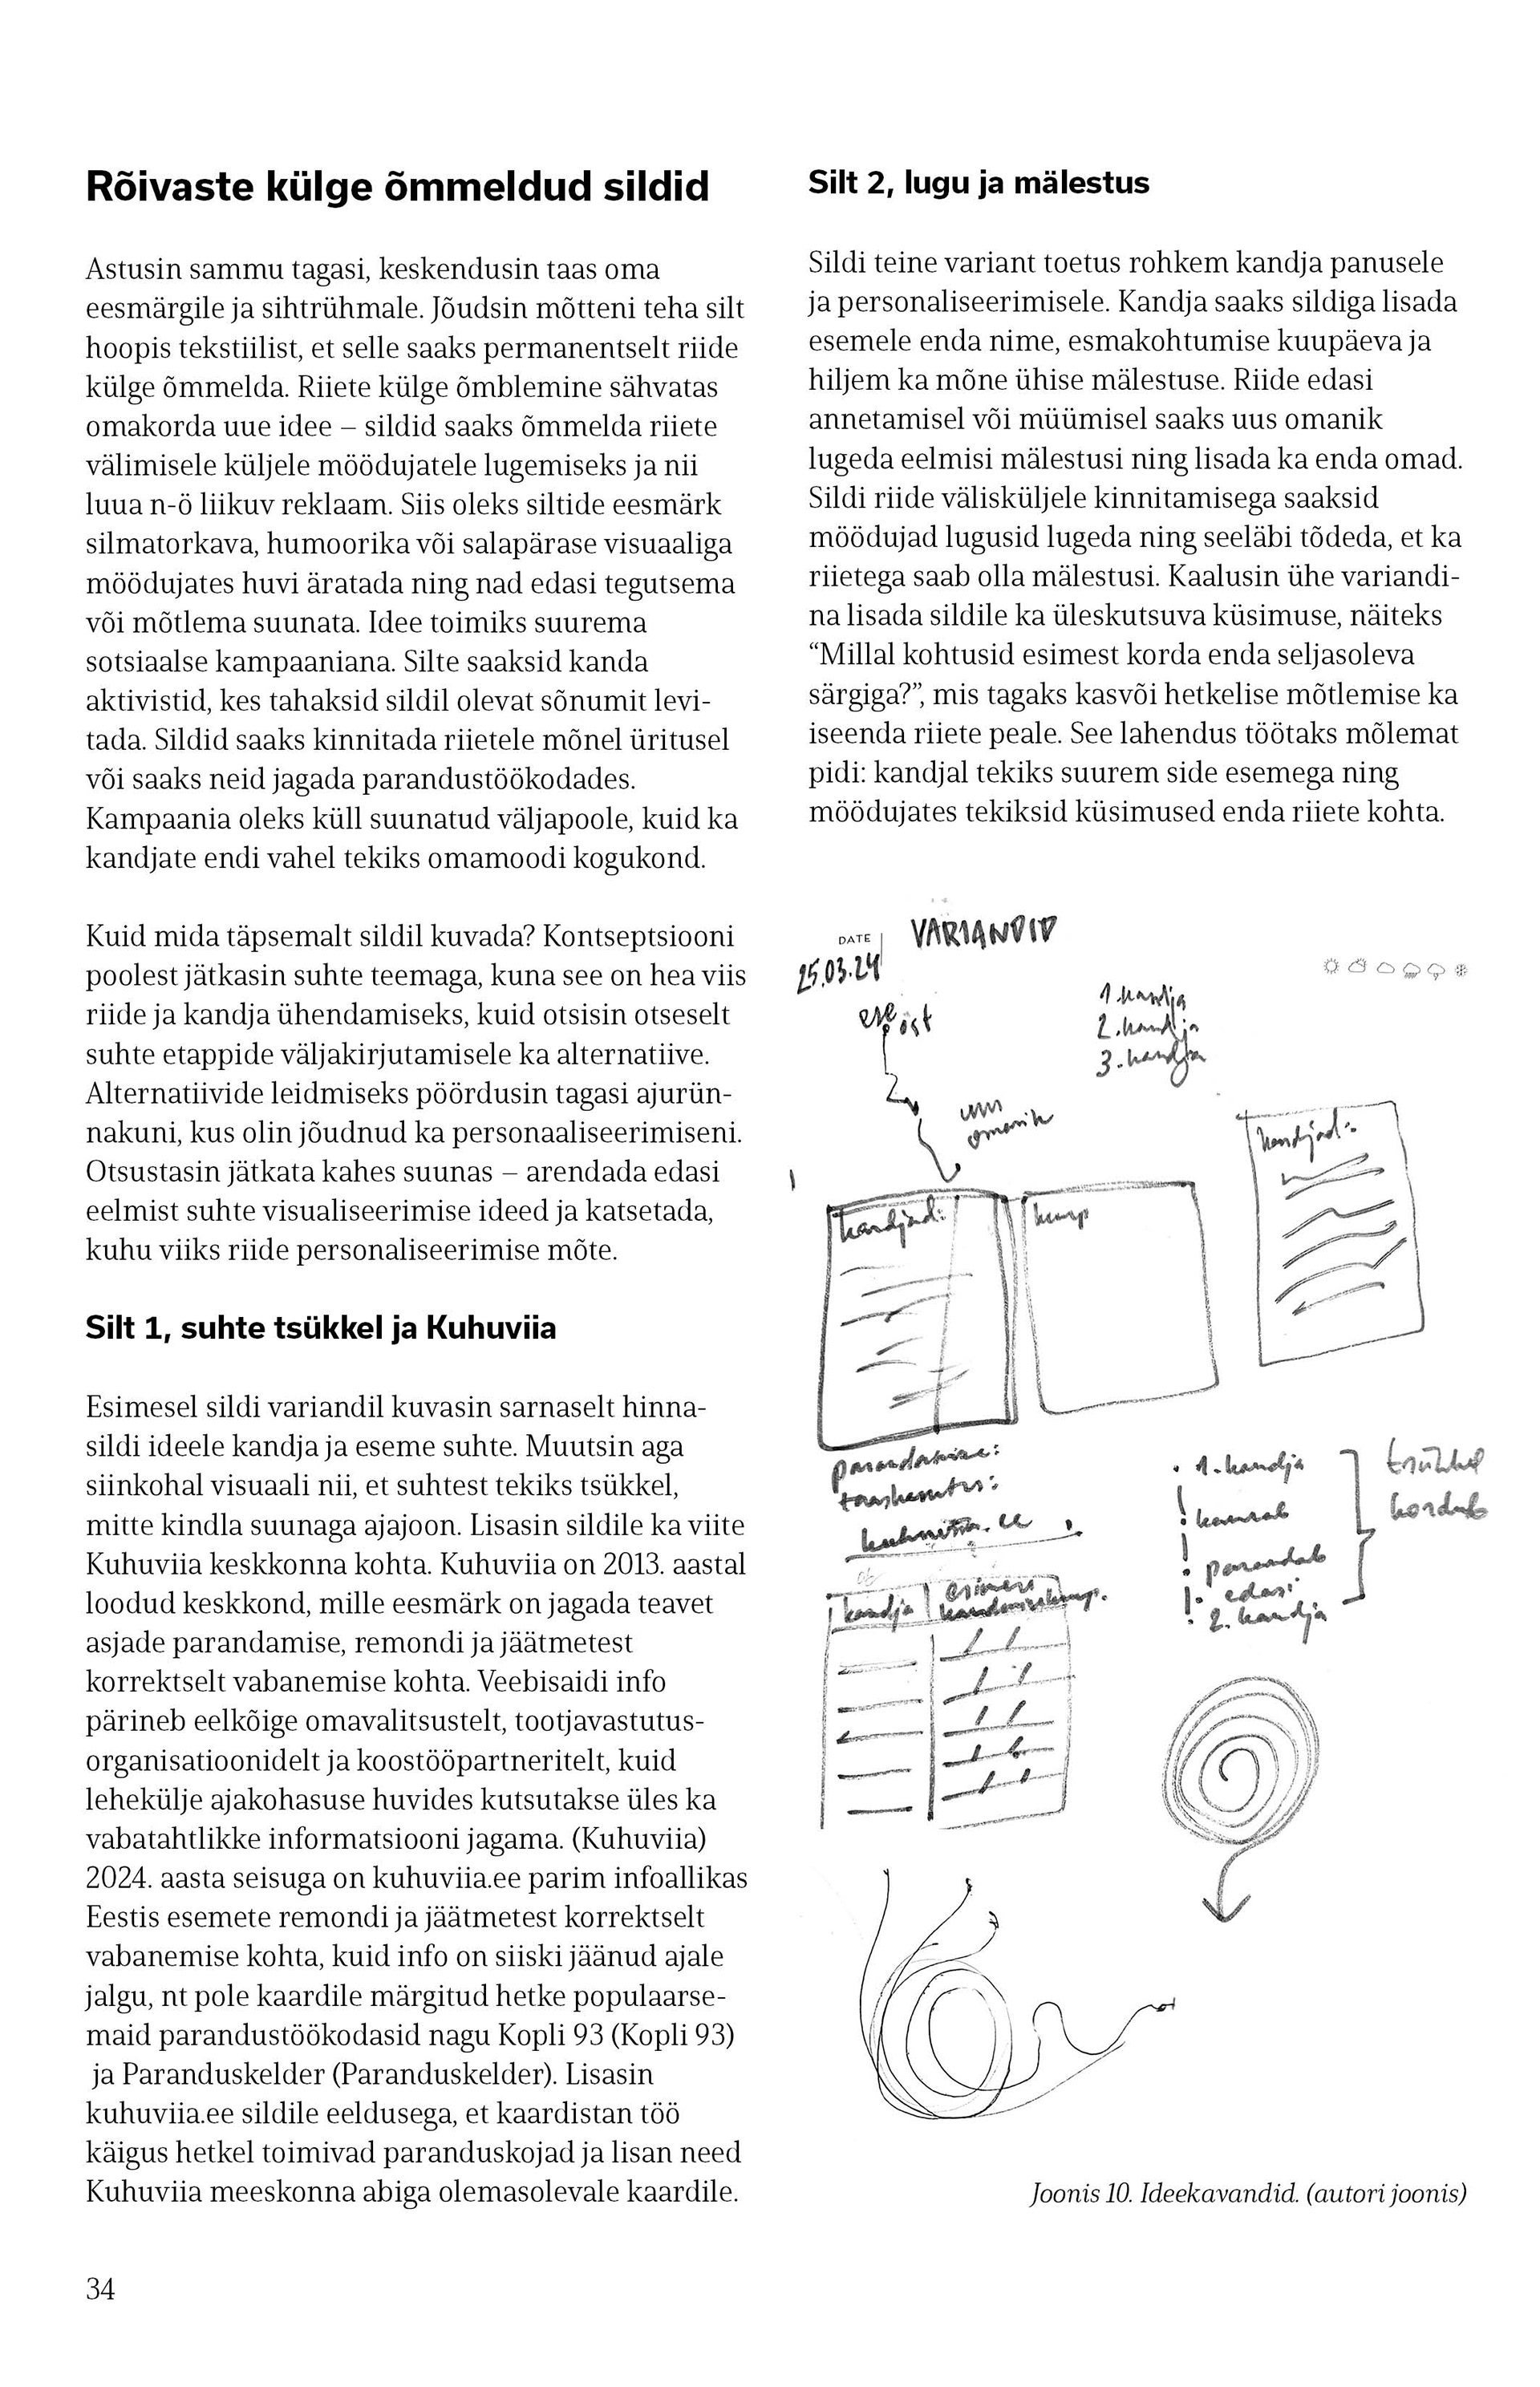 Rõivaste külge õmmeldud sildid
Astusin sammu tagasi, keskendusin taas oma
eesmärgile ja sihtrühmale. Jõudsin mõtteni teha silt
hoopis tekstiilist, et selle saaks permanentselt riide
külge õmmelda. Riiete külge õmblemine sähvatas
omakorda uue idee – sildid saaks õmmelda riiete
välimisele küljele möödujatele lugemiseks ja nii
luua n-ö liikuv reklaam. Siis oleks siltide eesmärk
silmatorkava, humoorika või salapärase visuaaliga
möödujates huvi äratada ning nad edasi tegutsema
või mõtlema suunata. Idee toimiks suurema
sotsiaalse kampaaniana. Silte saaksid kanda
aktivistid, kes tahaksid sildil olevat sõnumit levi-
tada. Sildid saaks kinnitada riietele mõnel üritusel
või saaks neid jagada parandustöökodades.
Kampaania oleks küll suunatud väljapoole, kuid ka
kandjate endi vahel tekiks omamoodi kogukond.
Kuid mida täpsemalt sildil kuvada? Kontseptsiooni
poolest jätkasin suhte teemaga, kuna see on hea viis
riide ja kandja ühendamiseks, kuid otsisin otseselt
suhte etappide väljakirjutamisele ka alternatiive.
Alternatiivide leidmiseks pöördusin tagasi ajurün-
nakuni, kus olin jõudnud ka personaaliseerimiseni.
Otsustasin jätkata kahes suunas – arendada edasi
eelmist suhte visualiseerimise ideed ja katsetada,
kuhu viiks riide personaliseerimise mõte.
Silt 1, suhte tsükkel ja Kuhuviia
Esimesel sildi variandil kuvasin sarnaselt hinna-
sildi ideele kandja ja eseme suhte. Muutsin aga
siinkohal visuaali nii, et suhtest tekiks tsükkel,
mitte kindla suunaga ajajoon. Lisasin sildile ka viite
Kuhuviia keskkonna kohta. Kuhuviia on 2013. aastal
loodud keskkond, mille eesmärk on jagada teavet
asjade parandamise, remondi ja jäätmetest
korrektselt vabanemise kohta. Veebisaidi info
pärineb eelkõige omavalitsustelt, tootjavastutus-
organisatioonidelt ja koostööpartneritelt, kuid
lehekülje ajakohasuse huvides kutsutakse üles ka
vabatahtlikke informatsiooni jagama. (Kuhuviia)
2024. aasta seisuga on kuhuviia.ee parim infoallikas
Eestis esemete remondi ja jäätmetest korrektselt
vabanemise kohta, kuid info on siiski jäänud ajale
jalgu, nt pole kaardile märgitud hetke populaarse-
maid parandustöökodasid nagu Kopli 93 (Kopli 93)
ja Paranduskelder (Paranduskelder). Lisasin
kuhuviia.ee sildile eeldusega, et kaardistan töö
käigus hetkel toimivad paranduskojad ja lisan need
Kuhuviia meeskonna abiga olemasolevale kaardile.
34
Silt 2, lugu ja mälestus
Sildi teine variant toetus rohkem kandja panusele
ja personaliseerimisele. Kandja saaks sildiga lisada
esemele enda nime, esmakohtumise kuupäeva ja
hiljem ka mõne ühise mälestuse. Riide edasi
annetamisel või müümisel saaks uus omanik
lugeda eelmisi mälestusi ning lisada ka enda omad.
Sildi riide välisküljele kinnitamisega saaksid
möödujad lugusid lugeda ning seeläbi tõdeda, et ka
riietega saab olla mälestusi. Kaalusin ühe variandi-
na lisada sildile ka üleskutsuva küsimuse, näiteks
“Millal kohtusid esimest korda enda seljasoleva
särgiga?”, mis tagaks kasvõi hetkelise mõtlemise ka
iseenda riiete peale. See lahendus töötaks mõlemat
pidi: kandjal tekiks suurem side esemega ning
möödujates tekiksid küsimused enda riiete kohta.
VARIANDID
DATE
25.03.24
ese ost
1. kandja
2. kandja
3. kandja
uus
omanik
kandjad:
kandjad:
kuup
parandamine:
taaskasutus:
kuhuviia.ee
1. kandja
kannab
parandab
edasi
2. kandja
tsükkel
kordub
kandja
esimene
kandmiskuup.
Joonis 10. Ideekavandid. (autori joonis)